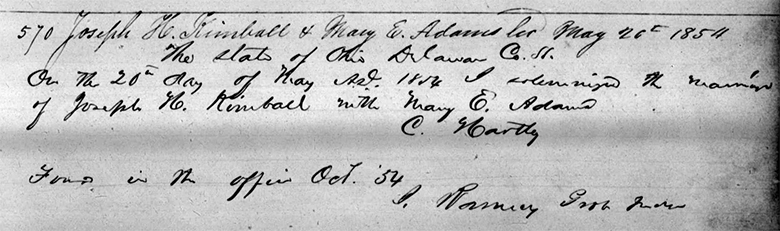 570 Joseph H. Kimball & Mary E. Adams Lic May 20th 1854
The State of Ohio Delaware Co. SS.
On the 20th day of May A.D. 1854 I solemnized the marriage
of Joseph H. Kimball with Mary E. Adams
C. Hartly
Found in the office Oct. '54
Prob Judge